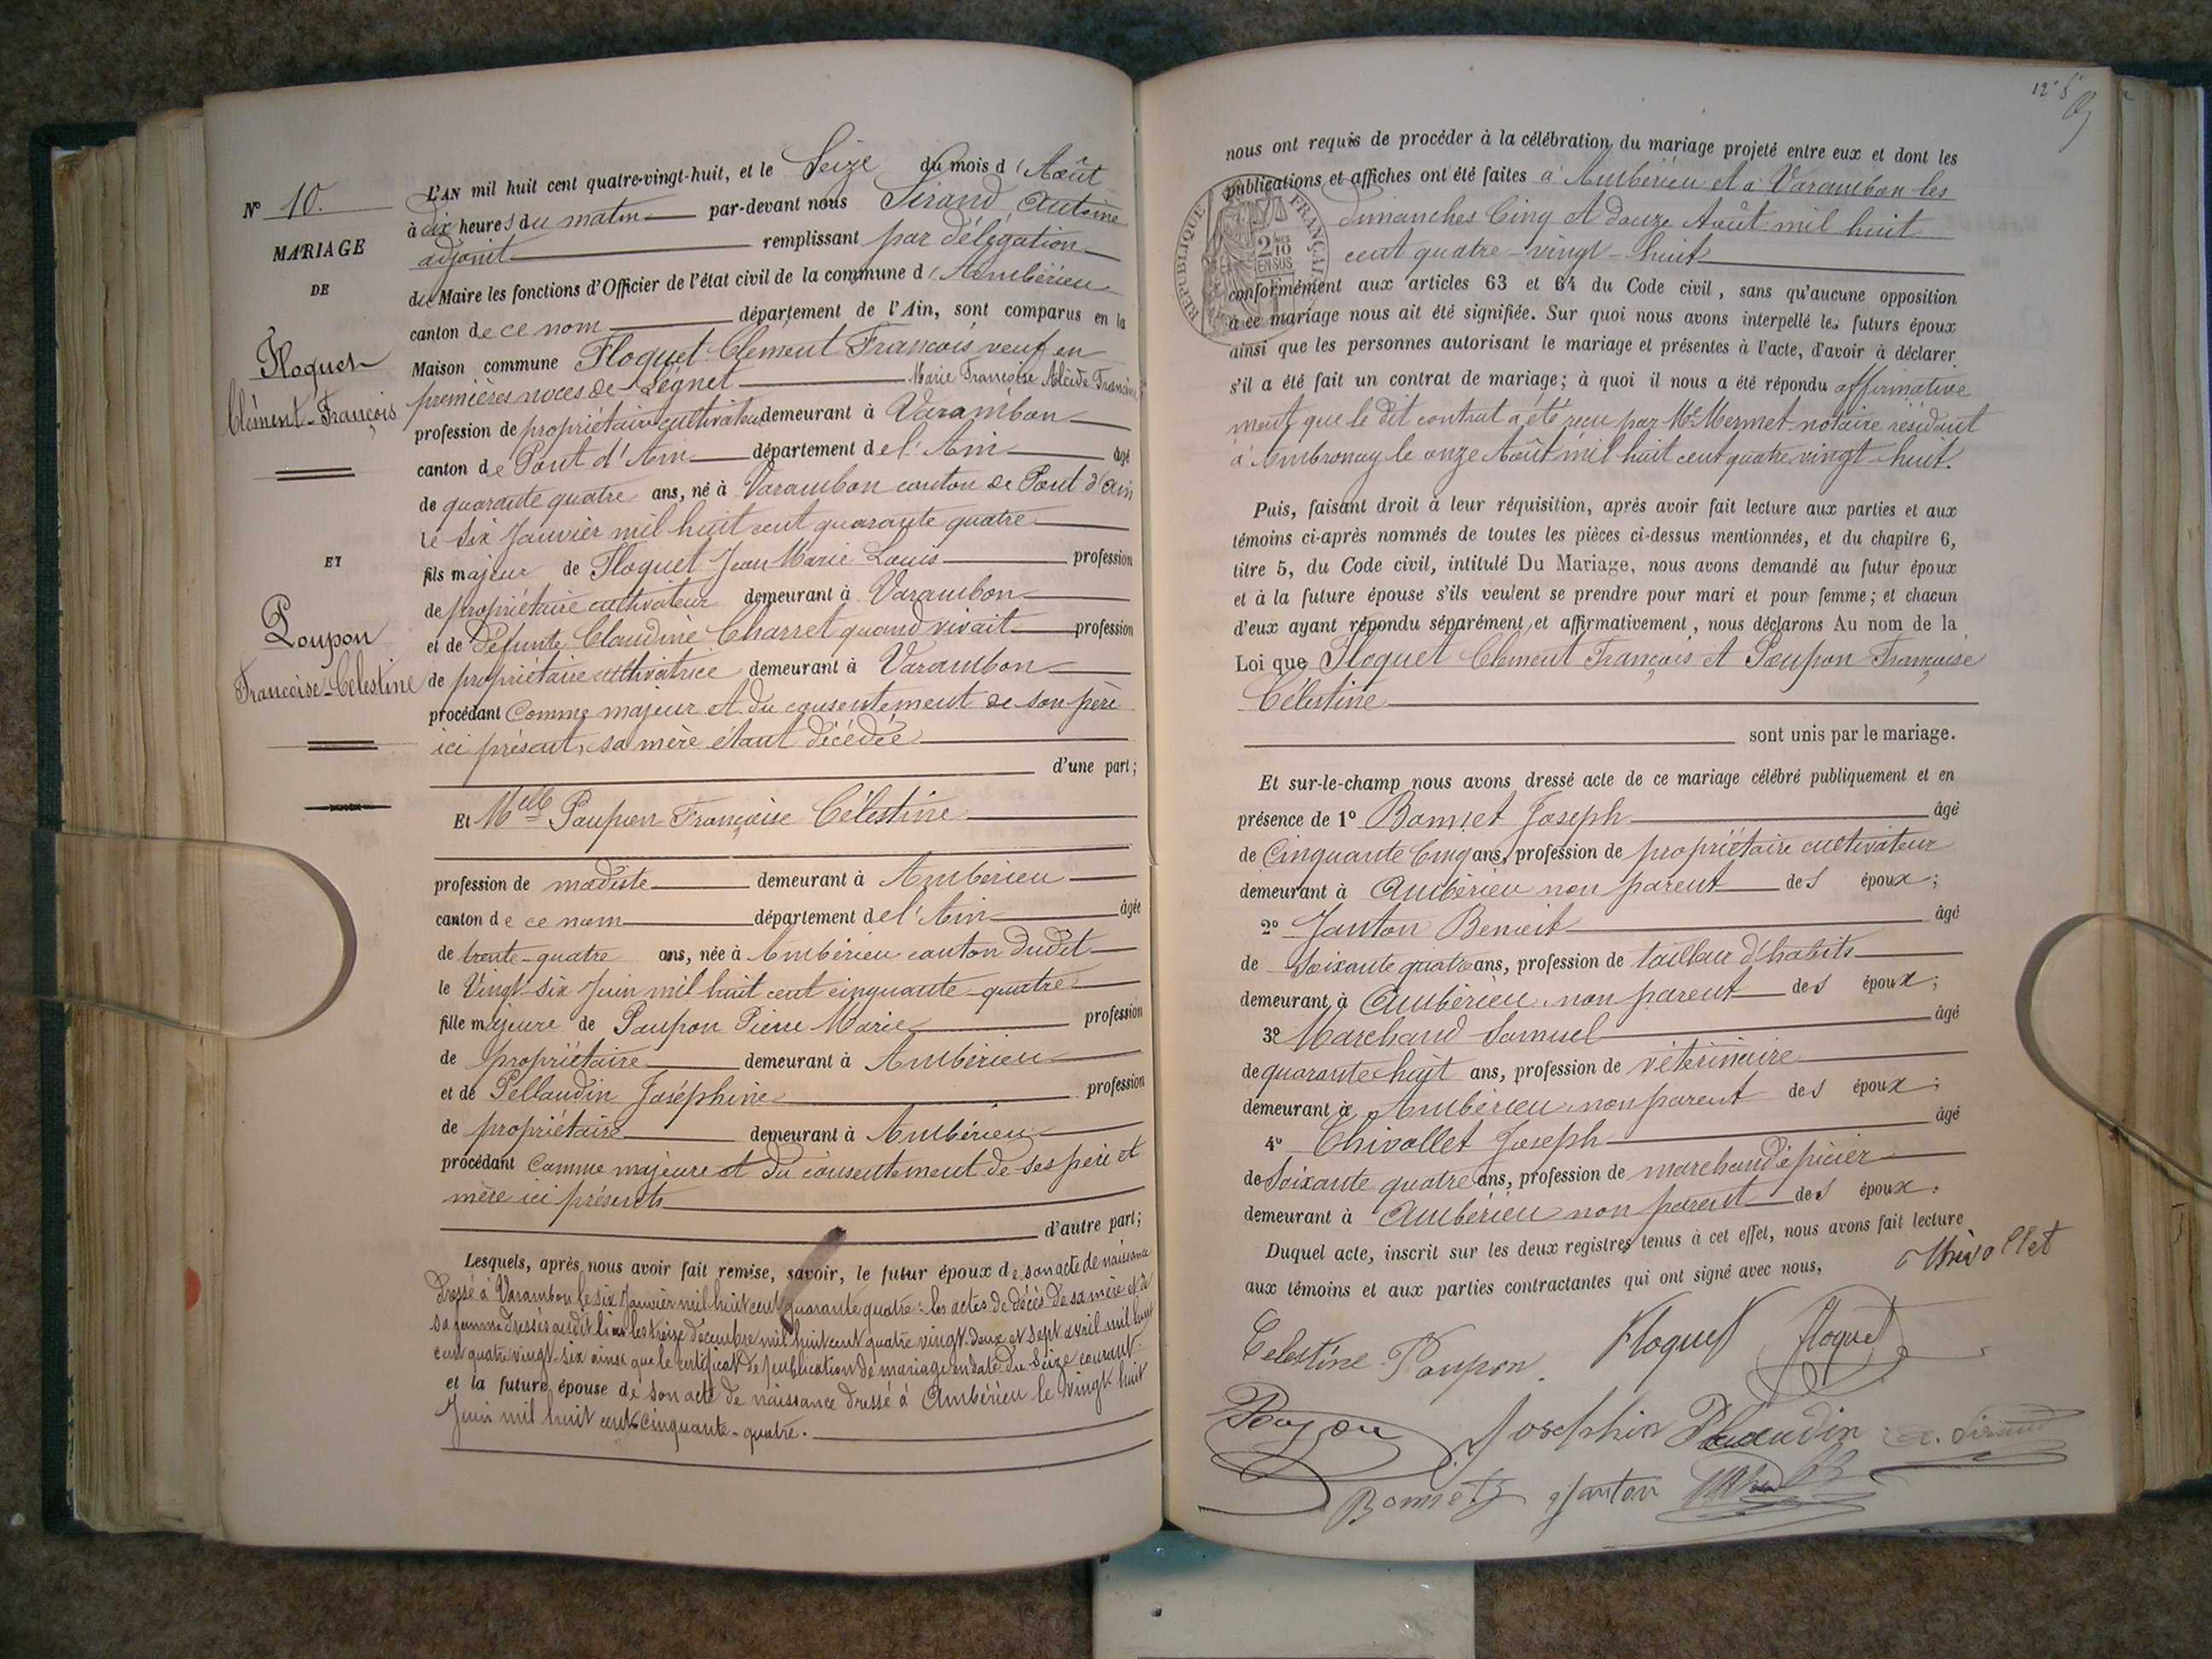 N° 10.
MARIAGE
DE
Floquet
Clément-François
ET
Poupon
Françoise-Célestine
L'AN mil huit cent quatre-vingt-huit, et le Seize du mois d'Août
à dix heures du matin par-devant nous Sirand, Antoine
adjoint remplissant par délégation
du Maire les fonctions d'Officier de l'état civil de la commune d'Ambérieu
canton de ce nom département de l'Ain, sont comparus en la
Maison commune Floquet Clément François veuf en
premières noces de Légnet Marie Françoise Alcide Francine
profession de propriétaire cultivateur demeurant à Varambon
canton de Pont d'Ain département de l'Ain âgé
de quarante quatre ans, né à Varambon canton de Pont d'Ain
le six Janvier mil huit cent quarante quatre
fils majeur de Floquet Jean Marie Louis profession
de propriétaire cultivateur demeurant à Varambon
et de Défunte Claudine Charret quand vivait profession
de propriétaire cultivatrice demeurant à Varambon
procédant comme majeur et du consentement de son père
ici présent, sa mère étant décédée
d'une part;
Et Melle Poupon Françoise Célestine
profession de modiste demeurant à Ambérieu
canton de ce nom département de l'Ain âgée
de trente-quatre ans, née à Ambérieu canton dudit
le Vingt-six Juin mil huit cent cinquante-quatre
fille majeure de Poupon Pierre Marie profession
de propriétaire demeurant à Ambérieu
et de Pellaudin Joséphine profession
de propriétaire demeurant à Ambérieu
procédant comme majeure et du consentement de ses père et
mère ici présents
d'autre part;
Lesquels, après nous avoir fait remise, savoir, le futur époux de son acte de naissance
dressé à Varambon le six Janvier mil huit cent quarante quatre : les actes de décès de sa mère et de
sa femme dressés audit lieu les treize décembre mil huit cent quatre vingt-deux et sept avril mil huit
cent quatre vingt-six ainsi que le certificat de publication de mariage en date du seize courant
et la future épouse de son acte de naissance dressé à Ambérieu le vingt-huit
Juin mil huit cent cinquante-quatre.
nous ont requis de procéder à la célébration du mariage projeté entre eux et dont les
publications et affiches ont été faites à Ambérieu et à Varambon les
dimanches Cinq et douze Août mil huit
cent quatre-vingt-huit
RÉPUBLIQUE FRANÇAISE
2/10 EN SUS
conformément aux articles 63 et 64 du Code civil, sans qu'aucune opposition
à ce mariage nous ait été signifiée. Sur quoi nous avons interpellé les futurs époux
ainsi que les personnes autorisant le mariage et présentes à l'acte, d'avoir à déclarer
s'il a été fait un contrat de mariage; à quoi il nous a été répondu affirmative
ment que le dit contrat a été reçu par Me Mermet notaire résidant
à Ambronay le onze Août mil huit cent quatre vingt-huit.
Puis, faisant droit à leur réquisition, après avoir fait lecture aux parties et aux
témoins ci-après nommés de toutes les pièces ci-dessus mentionnées, et du chapitre 6,
titre 5, du Code civil, intitulé Du Mariage, nous avons demandé au futur époux
et à la future épouse s'ils veulent se prendre pour mari et pour femme; et chacun
d'eux ayant répondu séparément et affirmativement, nous déclarons Au nom de la
Loi que Floquet Clément François et Poupon Françoise
Célestine
sont unis par le mariage.
Et sur-le-champ nous avons dressé acte de ce mariage célébré publiquement et en
présence de 1° Bonnet Joseph âgé
de Cinquante Cinq ans, profession de propriétaire cultivateur
demeurant à Ambérieu non parent des époux;
2° Janton Benoit âgé
de Soixante quatre ans, profession de tailleur d'habits
demeurant à Ambérieu non parent des époux;
3° Marchand Samuel âgé
de quarante huit ans, profession de vétérinaire
demeurant à Ambérieu non parent des époux;
4° Chivollet Joseph âgé
de Soixante quatre ans, profession de marchand épicier
demeurant à Ambérieu non parent des époux.
Duquel acte, inscrit sur les deux registres tenus à cet effet, nous avons fait lecture
aux témoins et aux parties contractantes qui ont signé avec nous,
Célestine Poupon. Floquet Floquet
Poupon Josephin A. Sirand
Bonnet Janton